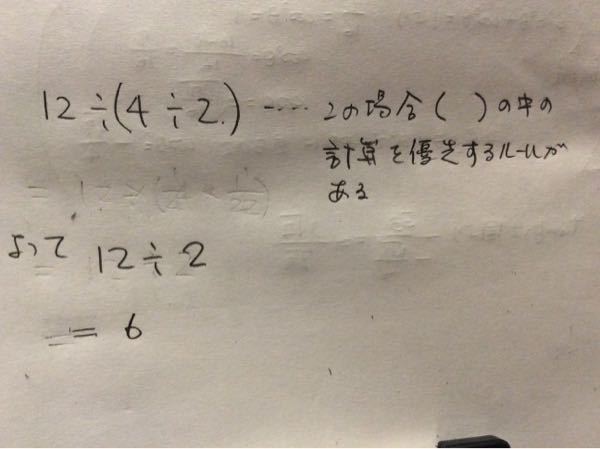 12÷(4÷2.) ‥‥ この場合( )の中の
計算を優先するルールが
ある
よって 12÷2
= 6